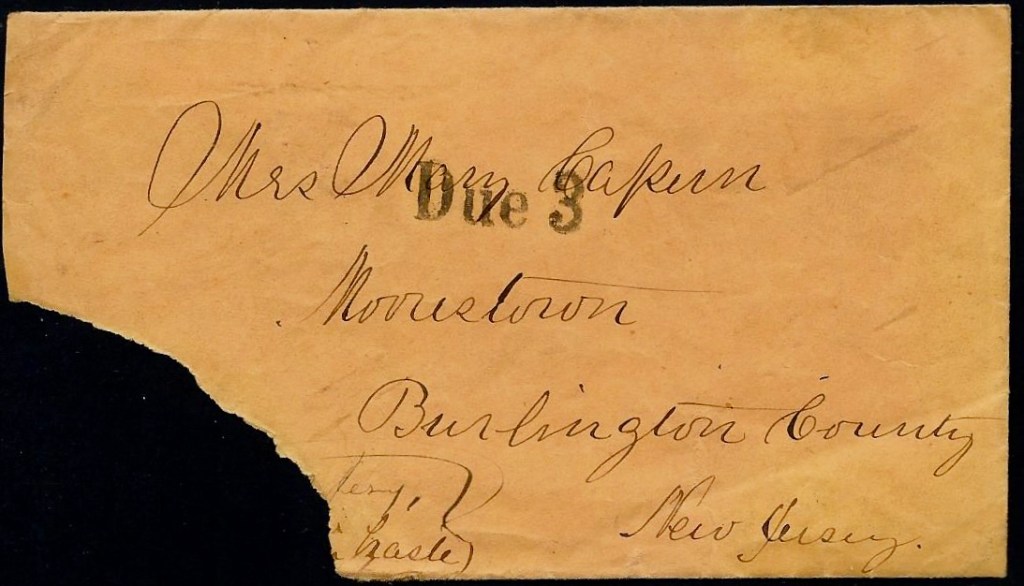 Mrs Mary Capern
Due 3
Moorestown
Burlington County
New Jersey.
tery,
haste